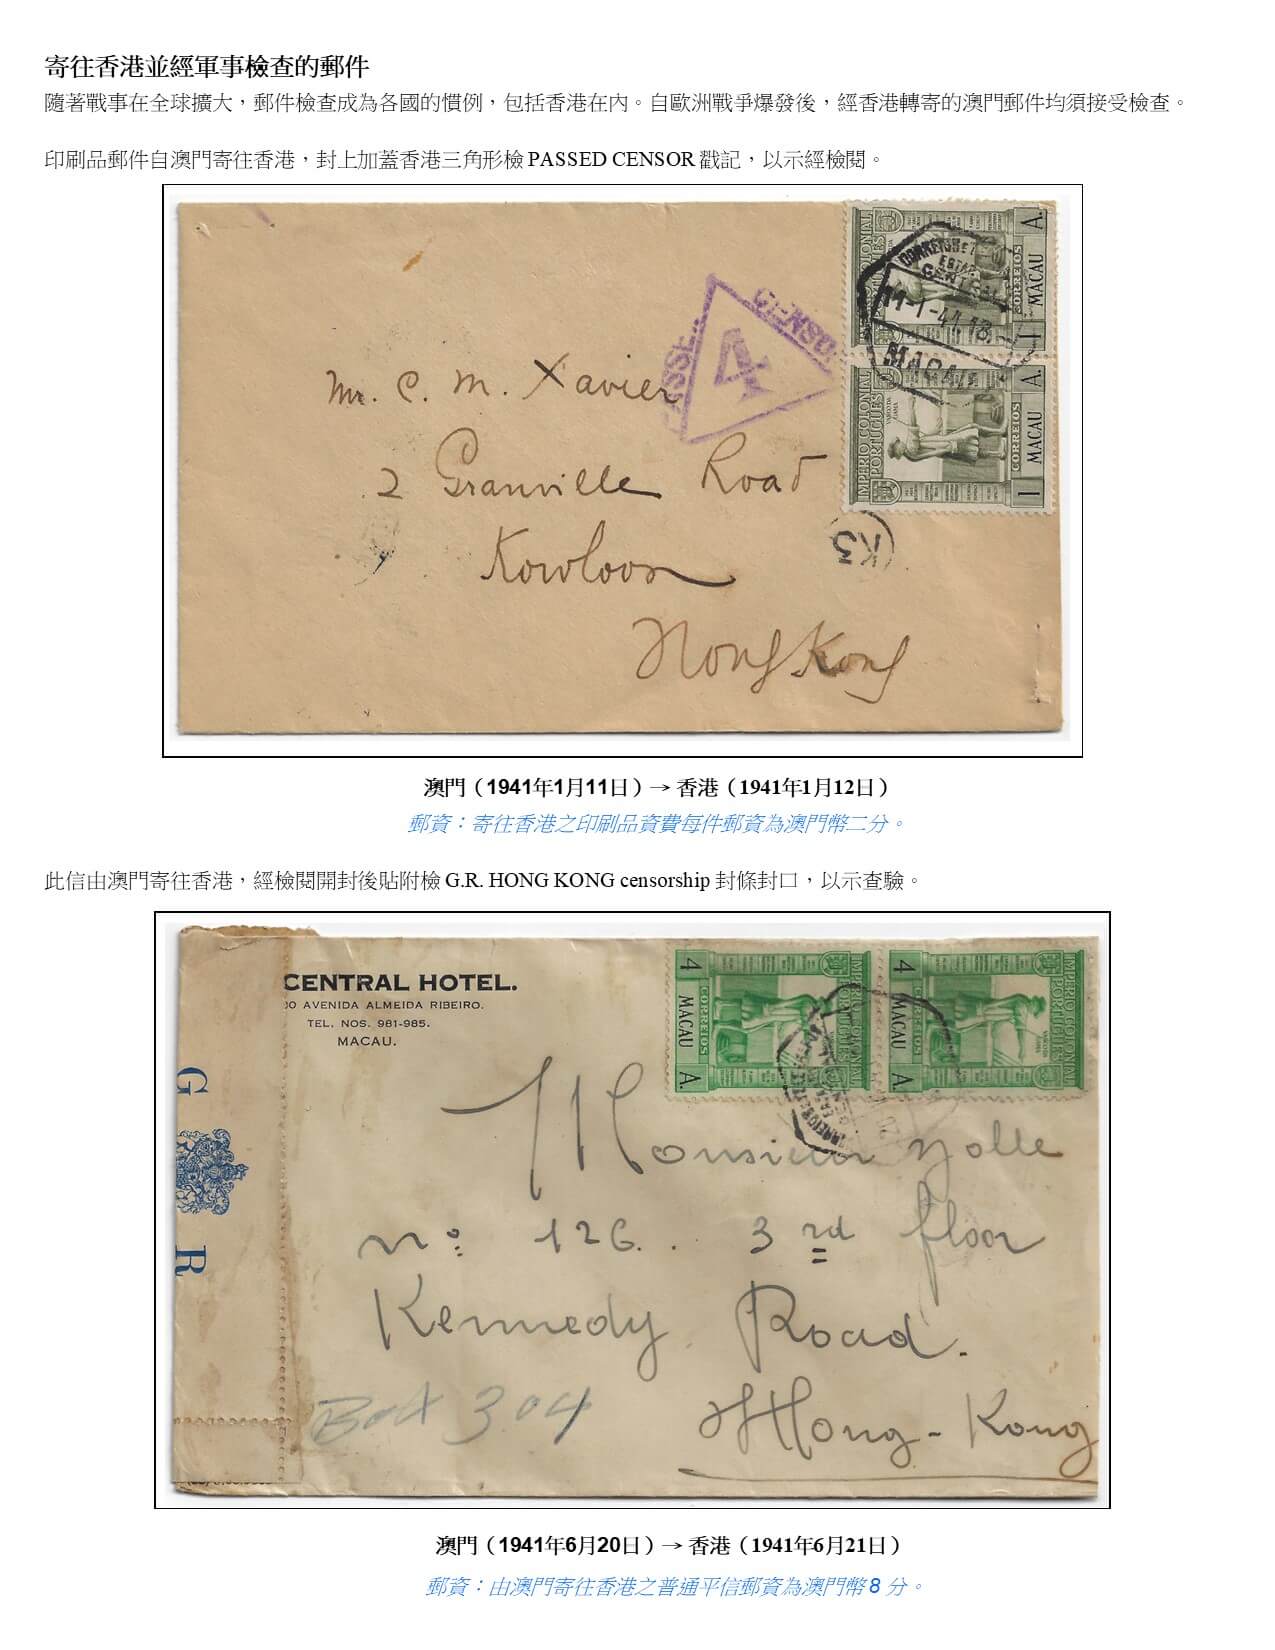 寄往香港並經軍事檢查的郵件
隨著戰事在全球擴大，郵件檢查成為各國的慣例，包括香港在內。自歐洲戰爭爆發後，經香港轉寄的澳門郵件均須接受檢查。
印刷品郵件自澳門寄往香港，封上加蓋香港三角形檢 PASSED CENSOR 戳記，以示經檢閱。
IMPERIO COLONIAL PORTUGUES
CORREIOS
MACAU
1 A.
CENTRAL
11-1-41 18
MACAU
CENSO
4
IMPERIO COLONIAL PORTUGUES
VASCO DA GAMA
CORREIOS
MACAU
1 A.
Mr. C. M. Xavier
2 Granville Road
Kowloon
Hong Kong
K3
澳門（1941年1月11日）→ 香港（1941年1月12日）
郵資：寄往香港之印刷品資費每件郵資為澳門幣二分。
此信由澳門寄往香港，經檢閱開封後貼附檢 G.R. HONG KONG censorship 封條封口，以示查驗。
CENTRAL HOTEL.
AVENIDA ALMEIDA RIBEIRO.
TEL. NOS. 981-985.
MACAU.
G R
4 A.
MACAU
CORREIOS
IMPERIO COLONIAL PORTUGUES
4 A.
MACAU
CORREIOS
VASCO DA GAMA
IMPERIO COLONIAL PORTUGUES
Monsieur
nº 126. . 3 rd floor
Kennedy Road.
Hong-Kong
304
澳門（1941年6月20日）→ 香港（1941年6月21日）
郵資：由澳門寄往香港之普通平信郵資為澳門幣 8 分。